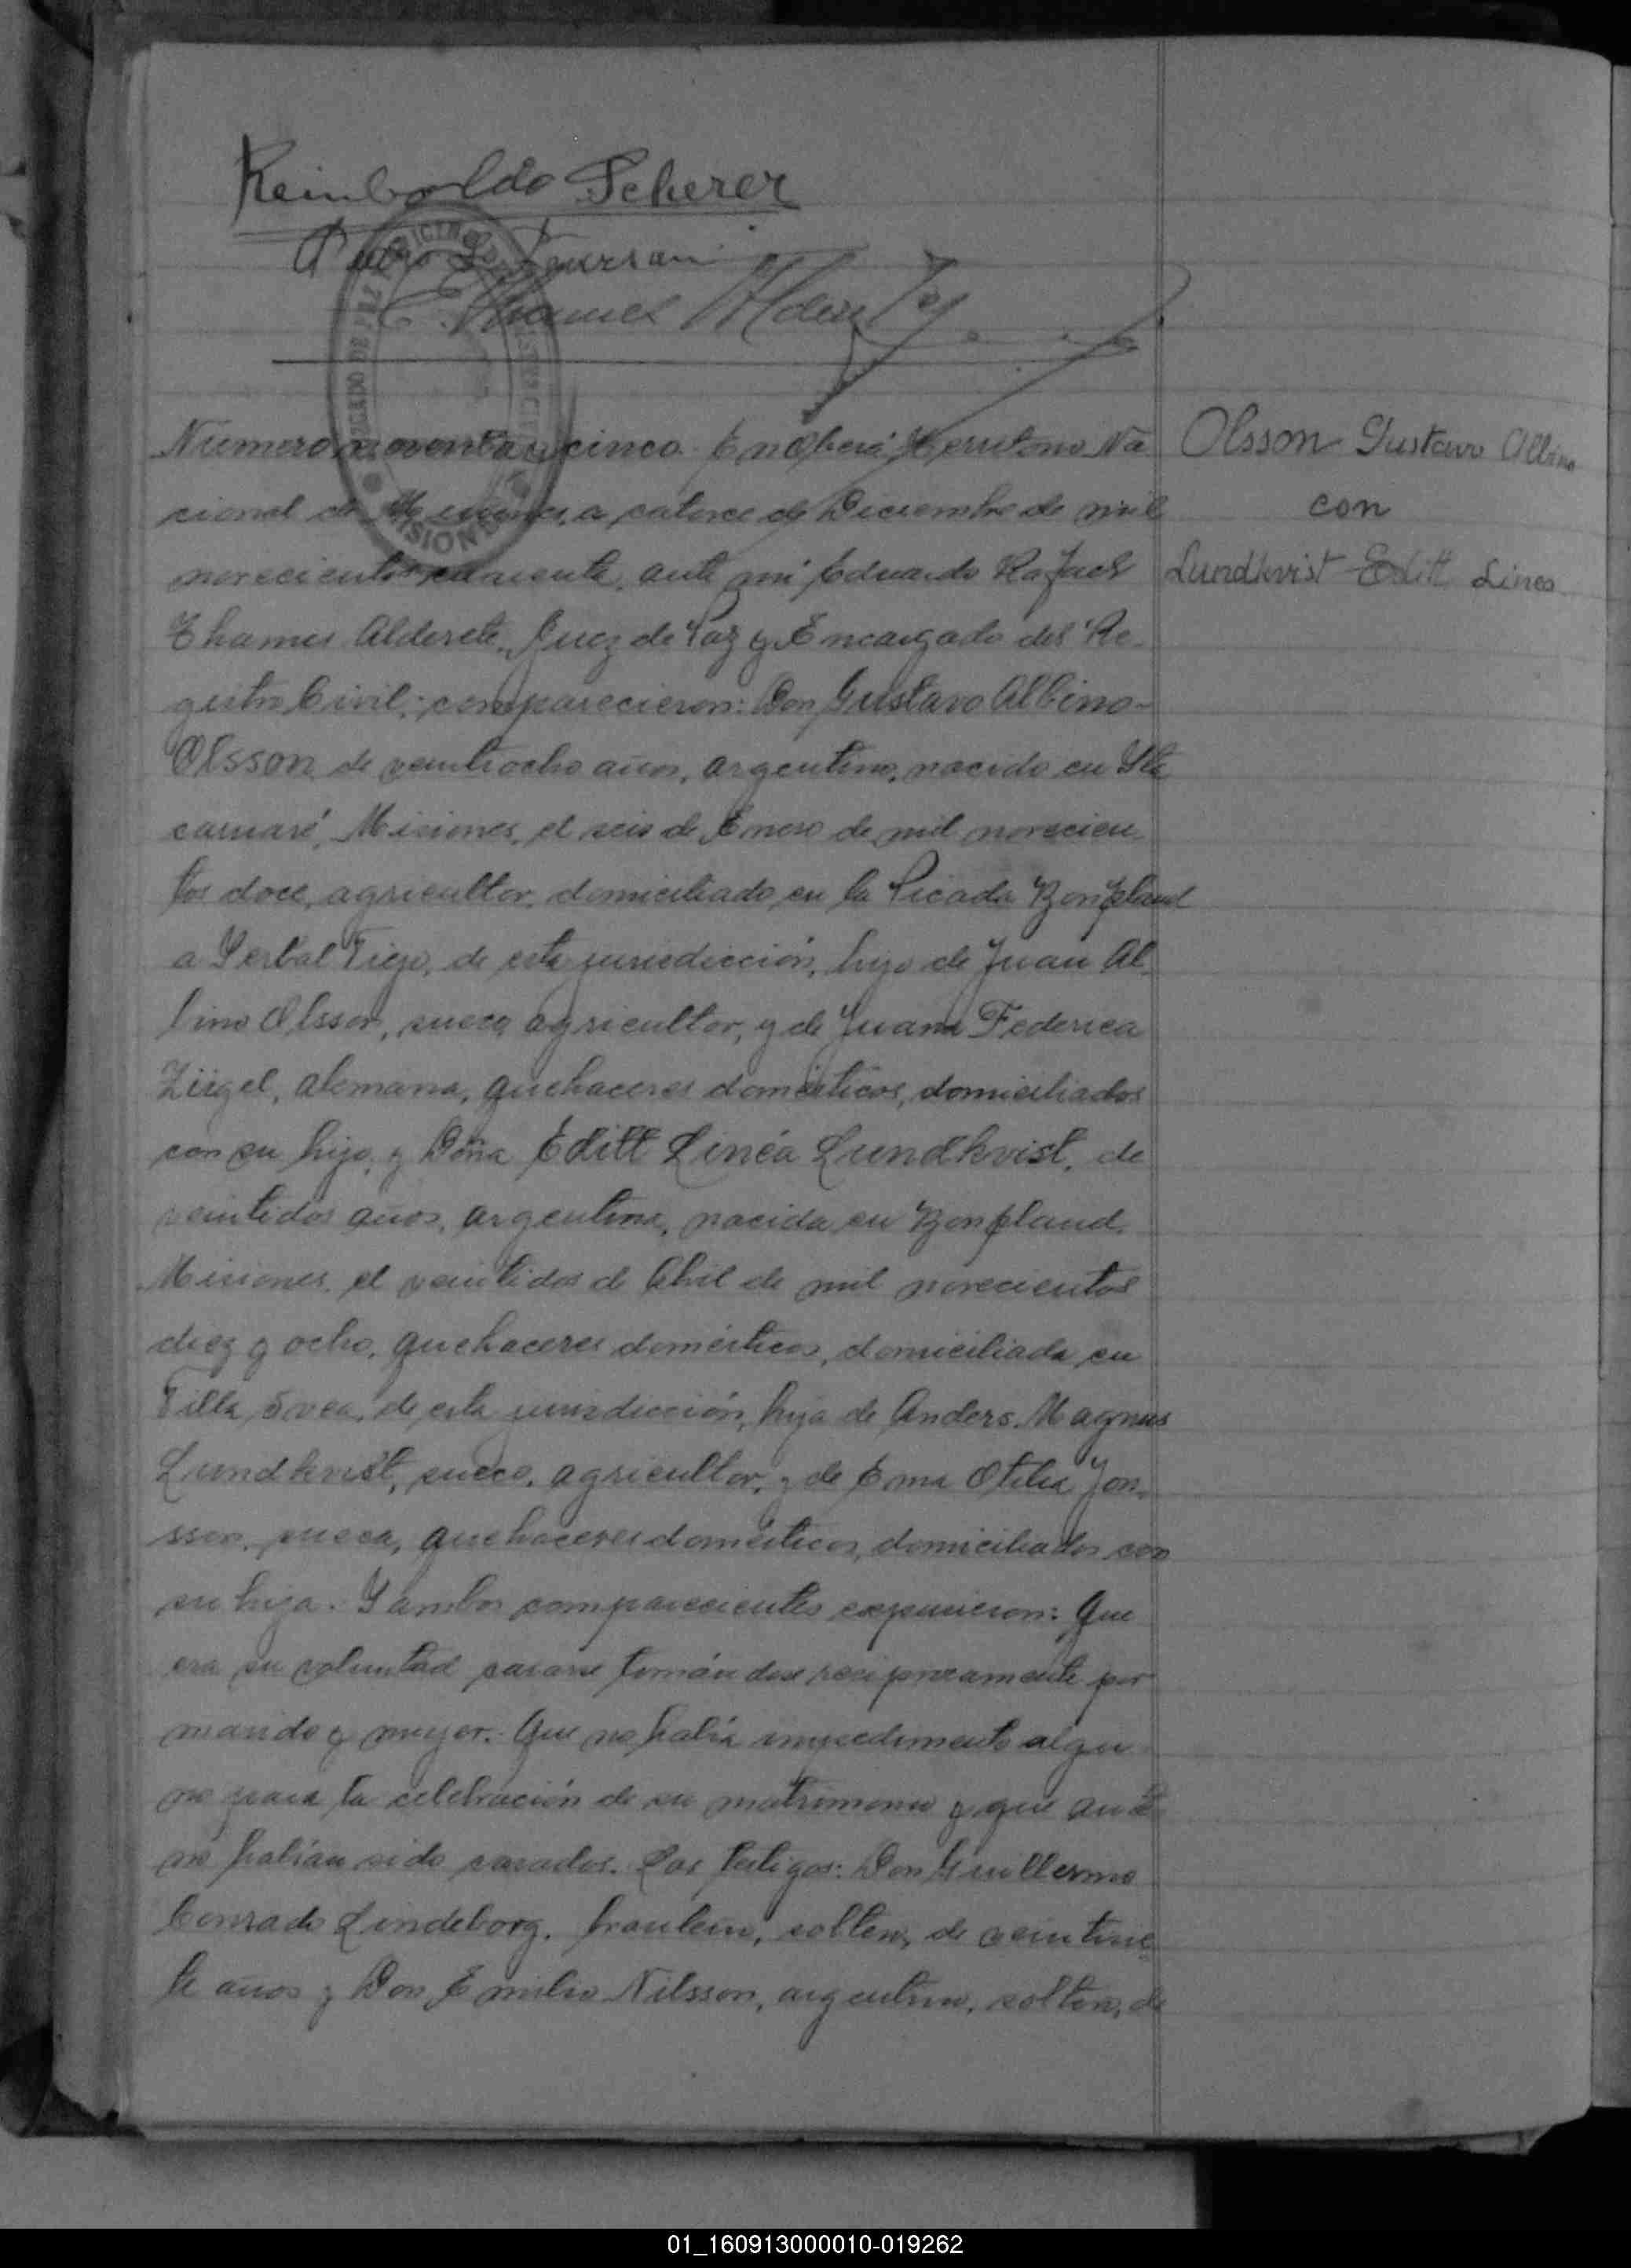 Reimboldo Scherer
Pedro
E. Thames Alderete
JUZGADO DE PAZ
MISIONES
Numero noventa y cinco. En Oberá, Territorio Na
cional de Misiones, a catorce de Diciembre de mil
novecientos cuarenta, ante mi Eduardo Rafael
Thames Alderete, Juez de Paz y Encargado del Re-
gistro Civil; comparecieron: Don Gustavo Albino-
Olsson, de veintiocho años, argentino, nacido en Ita
caruaré, Misiones, el seis de Enero de mil novecien
tos doce, agricultor, domiciliado en la Picada Bonpland
a Yerbal Viejo, de esta jurisdicción, hijo de Juan Al
bino Olsson, sueco, agricultor, y de Juana Federica
Zügel, alemana, quehaceres domésticos, domiciliados
con su hijo; y Doña Editt Linéa Lundkvist, de
veintidos años, argentina, nacida en Bonpland,
Misiones, el veintidos de Abril de mil novecientos
diez y ocho, quehaceres domésticos, domiciliada en
Villa Svea, de esta jurisdicción, hija de Anders Magnus
Lundkvist, sueco, agricultor, y de Ema Otilia Jon-
sson, sueca, quehaceres domésticos, domiciliados con
su hija. Y ambos comparecientes expusieron: Que
era su voluntad casarse tomándose reciprocamente por
marido y mujer. Que no había impedimento algu
no para la celebración de su matrimonio y que antes
no habían sido casados. Los testigos: Don Guillermo
Conrado Lindeborg, brasilero, soltero, de veintisie
te años y Don Emilio Nilsson, argentino, soltero, de
Olsson Gustavo Albino
con
Lundkvist Editt Linea
01_160913000010-019262